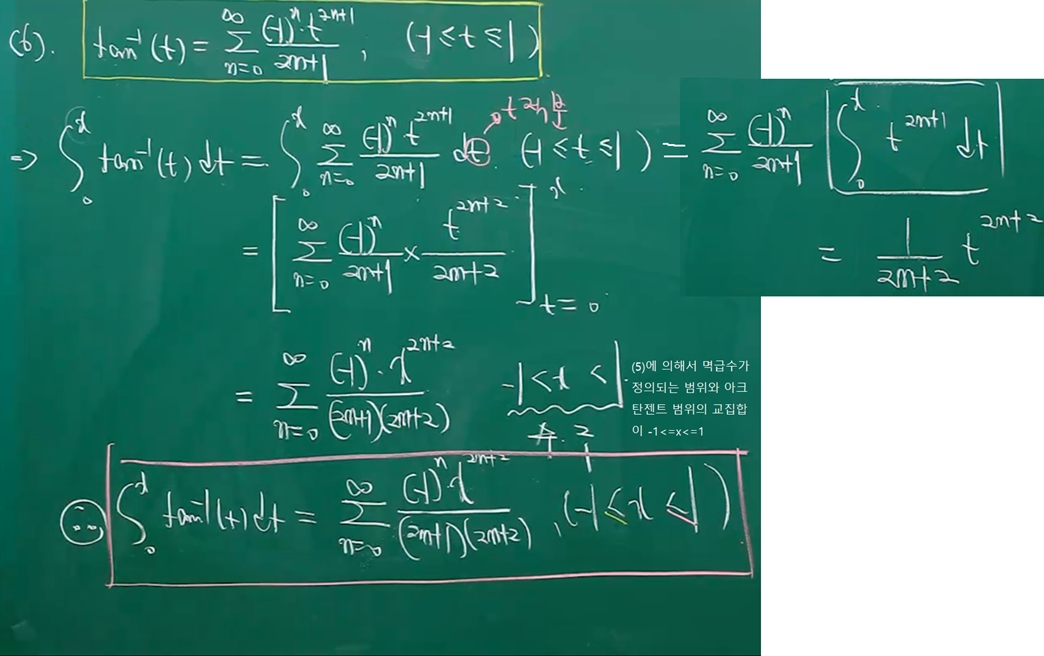 (6). tan⁻¹(t) = ∞ Σ n=0 (-1)ⁿ·t²ⁿ⁺¹ / 2n+1 , (-1 ≤ t ≤ 1)
⇒ ∫₀ˣ tan⁻¹(t) dt = ∫₀ˣ ∞ Σ n=0 (-1)ⁿ t²ⁿ⁺¹ / 2n+1 dt (-1 ≤ t ≤ 1) = ∞ Σ n=0 (-1)ⁿ / 2n+1 ∫₀ˣ t²ⁿ⁺¹ dt
= [ ∞ Σ n=0 (-1)ⁿ / 2n+1 × t²ⁿ⁺² / 2n+2 ] x t=0
= 1 / 2n+2 t²ⁿ⁺²
= ∞ Σ n=0 (-1)ⁿ·x²ⁿ⁺² / (2n+1)(2n+2) -1 < x < 1
(5)에 의해서 멱급수가
정의되는 범위와 아크
탄젠트 범위의 교집합
이 -1<=x<=1
∫₀ˣ tan⁻¹(t) dt = ∞ Σ n=0 (-1)ⁿ·x²ⁿ⁺² / (2n+1)(2n+2) , (-1 ≤ x ≤ 1)